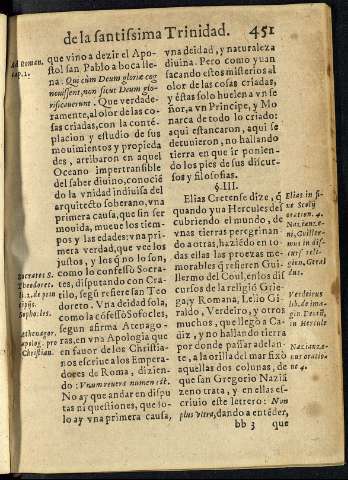 de la santissima Trinidad. 451
Ad Roman.
cap. 1.
que vino a dezir el Apo-
stol san Pablo a boca lle
na. Qui cùm Deum gloriæ cog
nouissent, non sicut Deum glo-
rificauerunt. Que verdade-
ramente, al olor de las co-
sas criadas, con la contẽ-
placion y estudio de sus
mouimientos y propieda
des, arribaron en aquel
Oceano impertransible
del saber diuino, conoció
do la vnidad indiuisa del
arquitecto soberano, vna
primera causa, que sin ser
mouida, mueue los tiem-
pos y las edades: vna pri-
mera verdad, que vee los
justos, y los q̃ no lo son,
como lo confessó Socra-
tes, disputando con Cra-
tilo, segũ refiere san Teo
doreto. Vna deidad sola,
como la cõfessó Sofocles,
segun afirma Atenago-
ras, en vna Apologia que
en fauor de los Christia-
nos escriue a los Empera-
dores de Roma, dizien-
do: Vnum reuera numen est.
No ay que andar en dispu
tas ni questiones, que so-
lo ay vna primera causa,
Socrates S.
Theodoret.
li. 2. de prin
cipijs.
Sophocles.
Athenagor.
apolog. pro
Christian.
vna deidad, y naturaleza
diuina. Pero como yuan
sacando estos misterios al
olor de las cosas criadas,
y éstas solo huelen a vn se
ñor, a vn Principe, y Mo
narca de todo lo criado:
aqui estancaron, aqui se
detuuieron, no hallando
tierra en que ir ponien-
do los pies de sus discur-
sos y filosofias.
§. III.
Elias Cretense dize, q̃
quando yua Hercules des
cubriendo el mundo, de
vnas tierras peregrinan
do a otras, haziẽdo en to
das ellas las proezas me-
morables q̃ refieren Gui-
llermo del Coul, en los dis
cursos de la religió Grie-
ga, y Romana, Lelio Gi-
raldo, Verdeiro, y otros
muchos, que llegò a Ca-
diz, y no hallando tierra
por donde passar adelan-
te, a la orilla del mar fixó
aquellas dos colunas, de
que san Gregorio Naziã
zeno trata, y en ellas es-
criuio este letrero: Non
plus vltra, dando a entẽder,
Elias in fi-
ne Scolij
oration. 4.
Nazianzẽ-
ni, Guiller-
mus in dis-
cursi reli-
gion, Giral
dus.
Verdeirus
lib. de imagin.
Deorũ,
in Hercule
Nazianzæ-
nus oratio-
ne 4.
bb 3 que